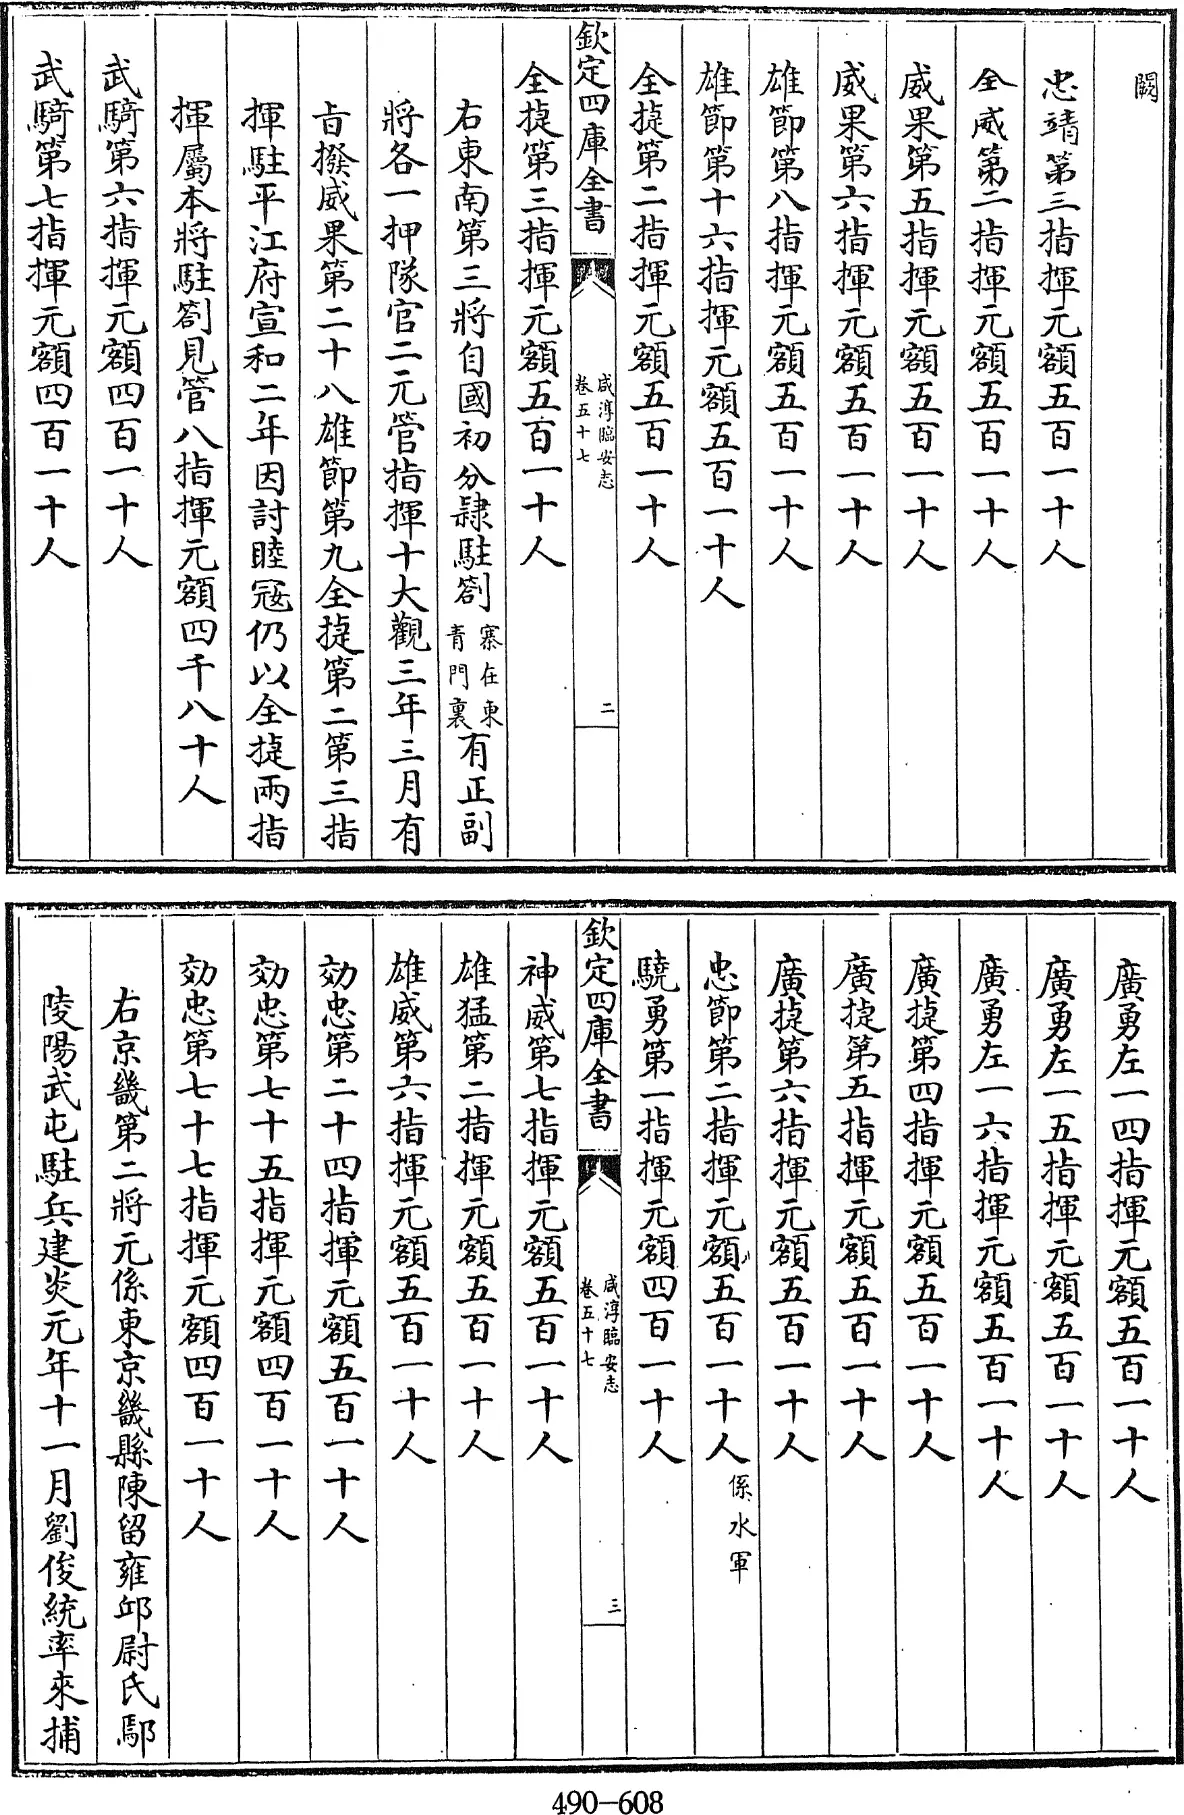 闕
忠靖第三指揮元額五百一十人
全威第二指揮元額五百一十人
威果第五指揮元額五百一十人
威果第六指揮元額五百一十人
雄節第八指揮元額五百一十人
雄節第十六指揮元額五百一十人
全捷第二指揮元額五百一十人
欽定四庫全書
咸淳臨安志
卷五十七
二
全捷第三指揮元額五百一十人
右東南第三將自國初分隷駐劄寨在東青門裏有正副
將各一押隊官二元管指揮十大觀三年三月有
旨撥威果第二十八雄節第九全捷第二第三指
揮駐平江府宣和二年因討睦冦仍以全捷兩指
揮屬本將駐劄見管八指揮元額四千八十人
武騎第六指揮元額四百一十人
武騎第七指揮元額四百一十人
廣勇左一四指揮元額五百一十人
廣勇左一五指揮元額五百一十人
廣勇左一六指揮元額五百一十人
廣捷第四指揮元額五百一十人
廣捷第五指揮元額五百一十人
廣捷第六指揮元額五百一十人
忠節第二指揮元額五百一十人係水軍
驍勇第一指揮元額四百一十人
欽定四庫全書
咸淳臨安志
卷五十七
三
神威第七指揮元額五百一十人
雄猛第二指揮元額五百一十人
雄威第六指揮元額五百一十人
効忠第二十四指揮元額五百一十人
効忠第七十五指揮元額四百一十人
効忠第七十七指揮元額四百一十人
右京畿第二將元係東京畿縣陳留雍邱尉氏鄢
陵陽武屯駐兵建炎元年十一月劉俊統率來捕
490-608